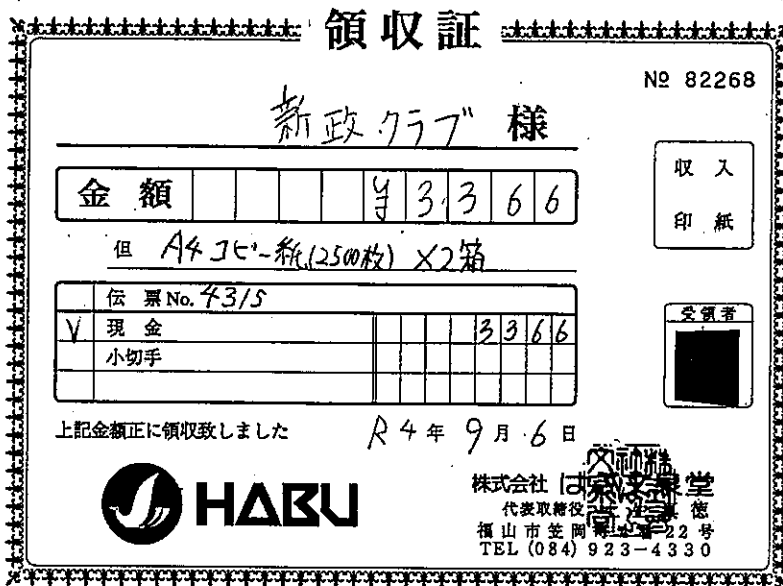 領収証
№ 82268
新政クラブ 様
収入
印紙
金額 ¥3,366
但 A4コピー紙(2500枚)×2箱
伝票No. 4315
V 現金 3366
小切手
受領者
上記金額正に領収致しました R4年9月6日
HABU
株式会社 は 堂
代表取締役 徳
福山市笠岡町 22号
TEL (084) 923-4330